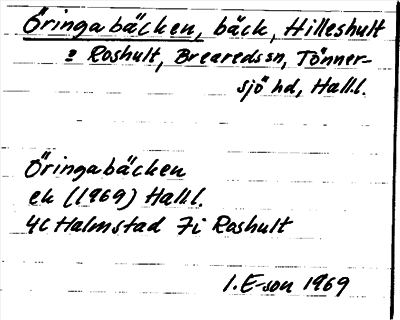 Öringabäcken, bäck, Hilleshult
o Roshult, Brearedssn, Tönner-
sjö hd, Hall.
Öringabäcken
ek (1969) Hall.
4C Halmstad 7i Roshult
I. E-son 1969